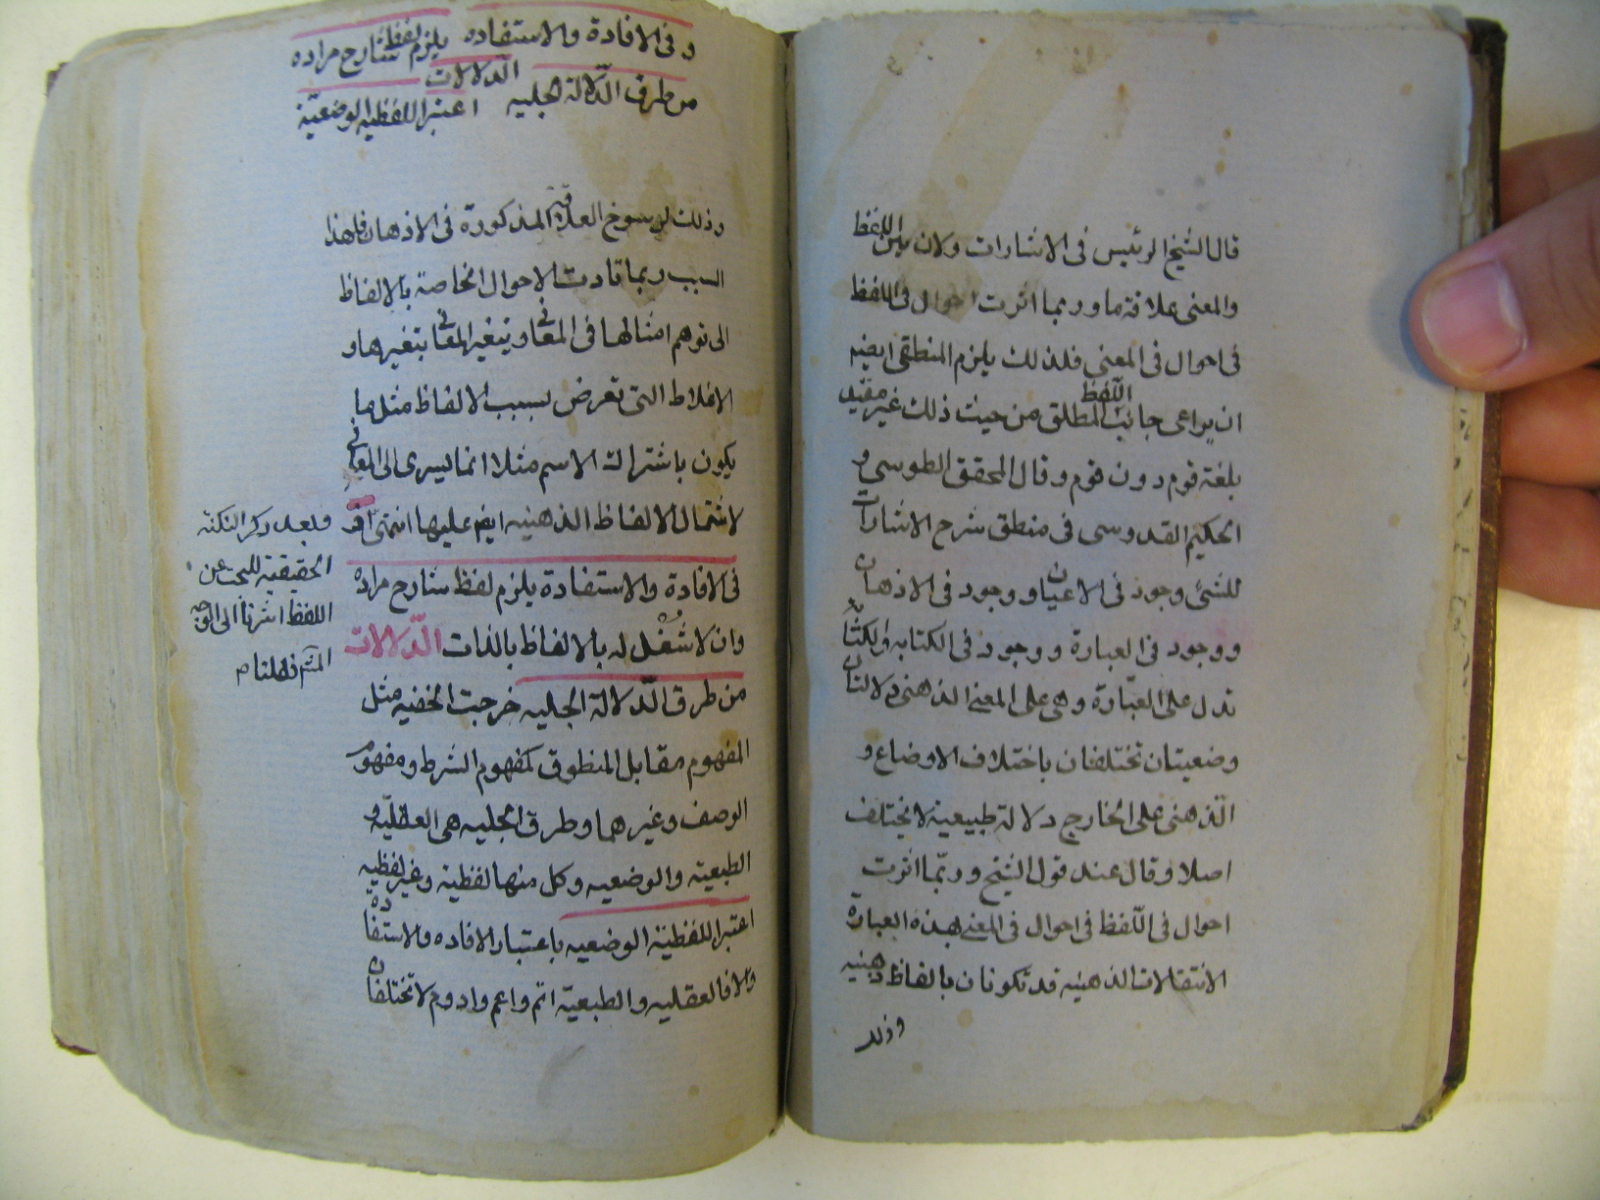 قال الشيخ الرئيس فى الاشارات ولان بين اللفظ
والمعنى علاقة ما وربما اثرت احوال فى اللفظ
فى احوال فى المعنى فلذلك يلزم المنطقى ايضم
ان يراعى جانب اللفظ المطلق من حيث ذلك غير مقيد
بلغة قوم دون قوم وقال المحقق الطوسى و
الحكيم القدوسى فى منطق شرح الاشارات
للشئ وجود فى الاعيان ووجود فى الاذهان
ووجود فى العبارة ووجود فى الكتابه والكتابة
تدل على العبارة وهى على المعنى الذهنى دلالتان
وضعيتان تختلفان باختلاف الاوضاع و
الذهنى على الخارج دلالة طبيعية لا يختلف
اصلا وقال عند قول الشيخ وربما اثرت
احوال فى اللفظ فى احوال فى المعنى بهذه العبارة
الانتقالات الذهنيه قد تكونان بالفاظ ذهنيه
وذلك
وفى الافادة والاستفاده يلزم لفظ شارح مراده
الدلالات
من طرف الدلالة الجليه اعتبر اللفظيه الوضعية
وذلك لرسوخ العلاقة المذكورة فى الاذهان فلهذا
السبب ربما قادت الاحوال الخاصة بالالفاظ
الى توهم امثالها فى المعانى ويتغير المعانى بتغيرها و
الاغلاط التى تعرض بسبب الالفاظ مثل ما
يكون باشتراك الاسم مثلا انما يسرى الى المعانى
لاشتمال الالفاظ الذهنيه ايضم عليها انتهى
فى الافادة والاستفادة يلزم لفظ شارح مراده
وان لا شغل له بالالفاظ بالذات الدلالات
من طرق الدلالة الجليه خرجت الخفيه مثل
المفهوم مقابل المنطوق كمفهوم الشرط ومفهوم
الوصف وغيرهما وطرق الجليه هى العقلية و
الطبعية والوضعيه وكل منها لفظية وغير لفظيه
اعتبر اللفظية الوضعيه باعتبار الافاده والاستفاده
والا فالعقليه والطبعية اتم واعم وادوم لا تختلفان
وبعد ذكر النكتة
الحقيقية للبحث عن
اللفظ اشرنا الى الوجه
فقلنا م